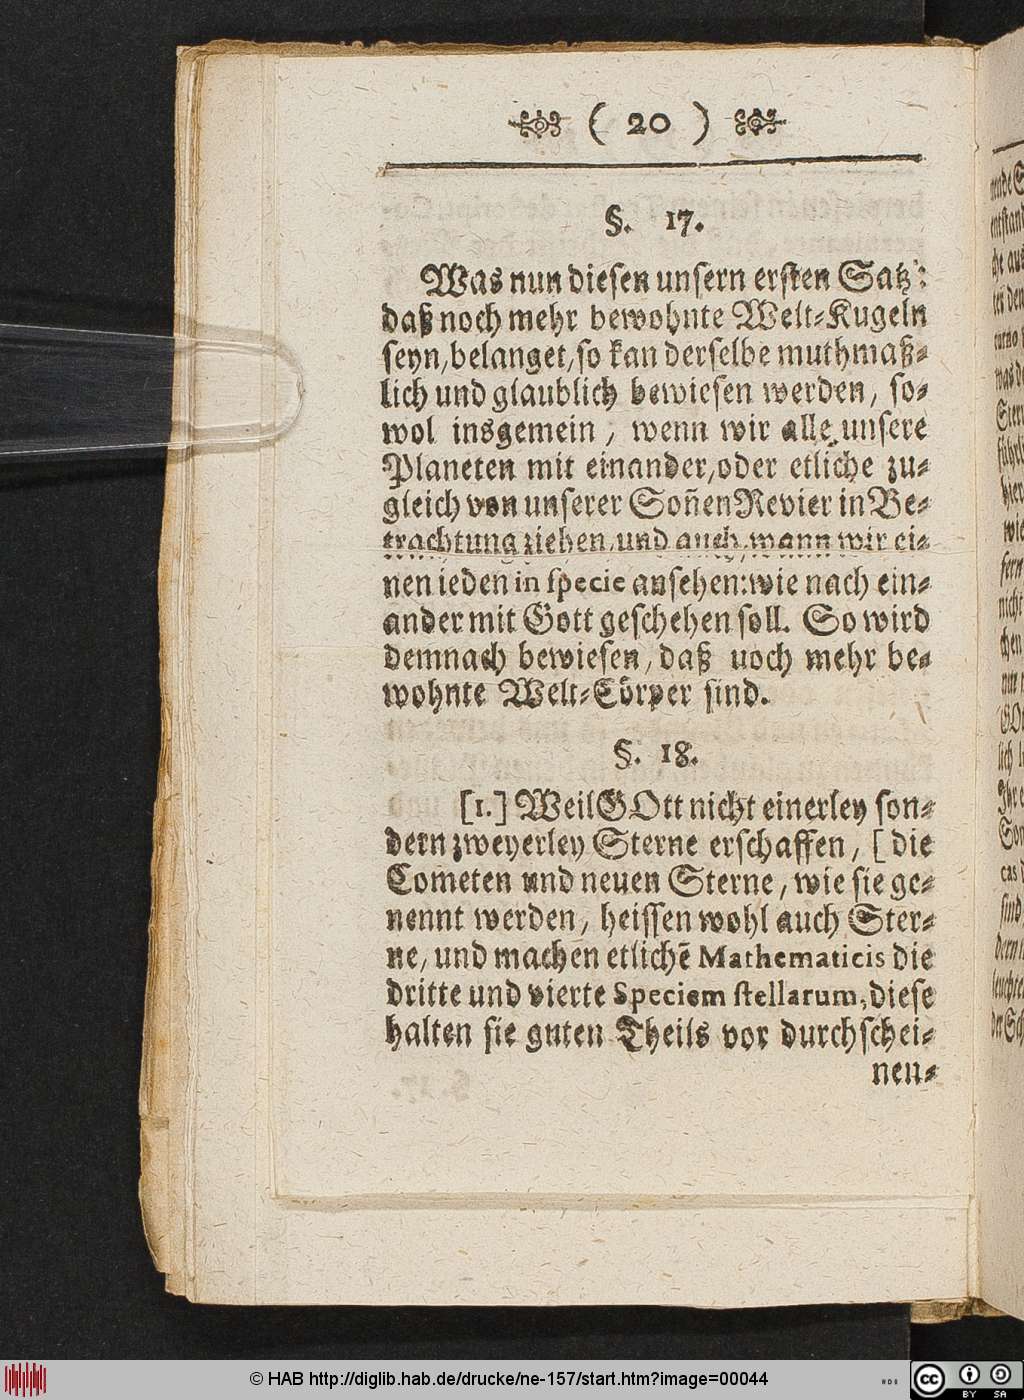 ( 20 )
§. 17.
Was nun diesen unsern ersten Satz:
daß noch mehr bewohnte Welt-Kugeln
seyn, belanget, so kan derselbe muthmaß-
lich und glaublich bewiesen werden, so-
wol insgemein, wenn wir alle unsere
Planeten mit einander, oder etliche zu-
gleich von unserer Soñen Revier in Be-
trachtung ziehen, und auch, wann wir ei-
nen ieden in specie ansehen: wie nach ein-
ander mit Gott geschehen soll. So wird
demnach bewiesen, daß uoch mehr be-
wohnte Welt-Cörper sind.
§. 18.
[1.] Weil GOtt nicht einerley son-
dern zweyerley Sterne erschaffen, [die
Cometen und neuen Sterne, wie sie ge-
nennt werden, heissen wohl auch Ster-
ne, und machen etlichē Mathematicis die
dritte und vierte Speciem stellarum, diese
halten sie guten Theils vor durchschei-
nen-
© HAB http://diglib.hab.de/drucke/ne-157/start.htm?image=00044
BY SA